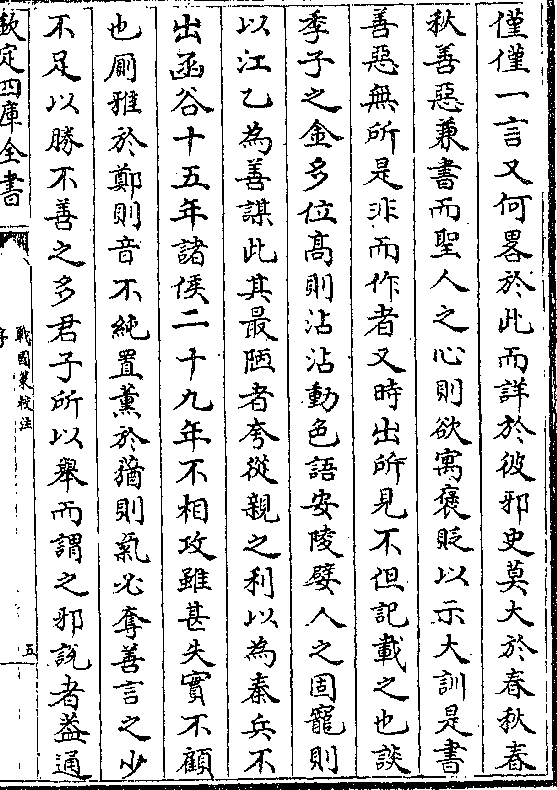 僅僅一言又何畧於此而詳於彼邪史莫大於春秋春
秋善惡兼書而聖人之心則欲寓褒貶以示大訓是書
善惡無所是非而作者又時出所見不但記載之也談
季子之金多位高則沾沾動色語安陵嬖人之固寵則
以江乙為善謀此其最陋者夸從親之利以為秦兵不
出函谷十五年諸侯二十九年不相攻雖甚失實不顧
也厠雅於鄭則音不純置薰於蕕則氣必奪善言之少
不足以勝不善之多君子所以舉而謂之邪說者葢通
欽定四庫全書
戰國策校注
序
五